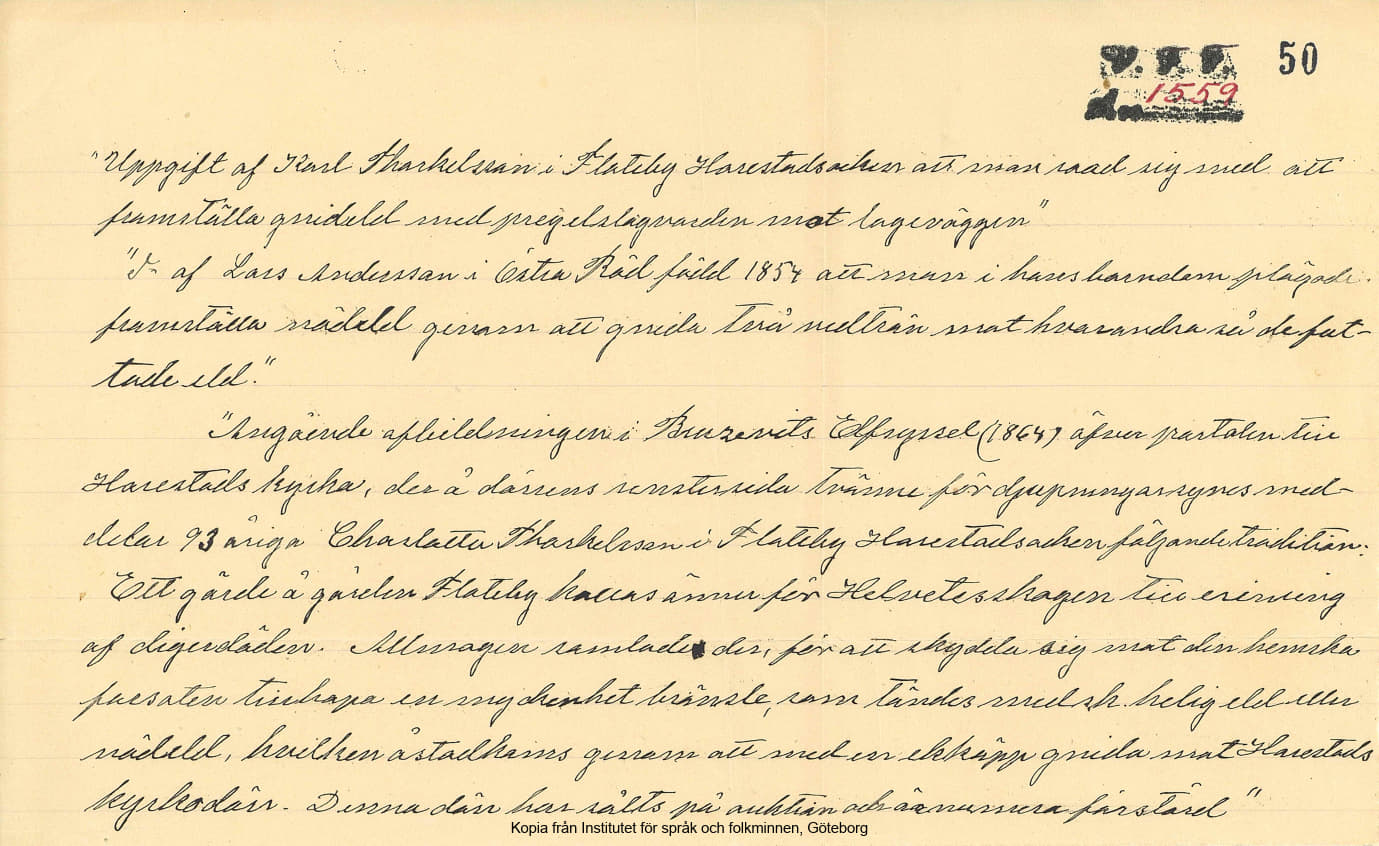 50
1559
"Uppgift af Karl Thorkelsson i Flateby Harestadsocken att man vred sig med att
framställa gnideld med pregelslagvarden mot logeväggen"
"D:o af Lars Andersson i Östra Röd född 1854 att man i hans barndom plägade
framställa nödeld genom att gnida två vedträn mot hvarandra så de fat-
tade eld."
"Angående afbildningen i Bruzevits Elfsyssel (1864) öfver portalen till
Harestads kyrka, der å dörrens venstersida tvänne fördjupningar synes med-
delar 93 åriga Charlotta Thorkelsson i Flateby Harestadsocken följande tradition:
Ett gärde å gården Flateby kallas ännu för Helvetesskogen till erinring
af digerdöden. Allmogen samlade der, för att skydda sig mot den hemska
farsoten tillhopa en myckenhet bränsle, som tändes med s.k. helig eld eller
nödeld, hvilken åstadkoms genom att med en ekkäpp gnida mot Harestads
kyrkodörr. Denna dörr har sålts på auktion och är numera förstörd"
Kopia från Institutet för språk och folkminnen, Göteborg